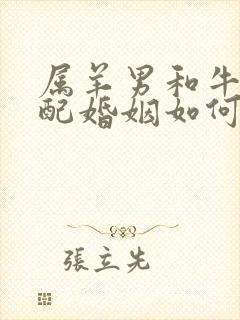 属羊男和牛
配婚姻如何
張立先